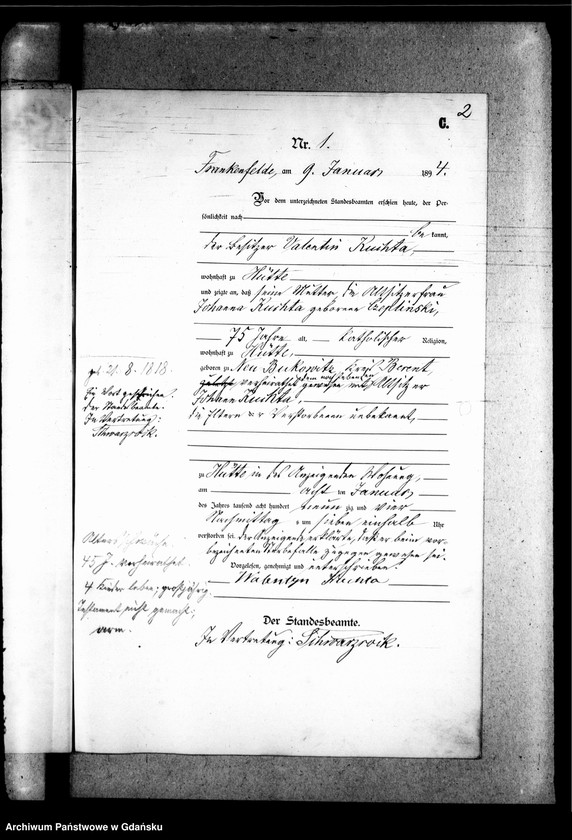 2
C.
Nr. 1.
Frankenfelde, am 9. Januar 1894.
Vor dem unterzeichneten Standesbeamten erschien heute, der Per-
sönlichkeit nach
be kannt,
der Besitzer Valentin Kuchta,
wohnhaft zu Hütte
und zeigte an, daß seine Mutter, die Altsitzerfrau
Johanna Kuchta geborene Czeplinski,
75 Jahre alt, katholischer Religion,
wohnhaft zu Hütte,
geboren zu Neu Bukowitz, Kreis Berent,
verheirathet gewesen mit dem noch lebenden Altsitzer
Johann Kuchta,
die Eltern der Verstorbenen unbekannt,
zu Hütte in des Anzeigenden Wohnung,
am acht ten Januar
des Jahres tausend acht hundert neun zig und vier
Nachmittag s um sieben einhalb Uhr
verstorben sei. Der Anzeigende erklärte, daß er beim vor-
bezeichneten Sterbefalle zugegen gewesen sei.
Vorgelesen, genehmigt und unterschrieben.
Walentyn Kuchta
Der Standesbeamte.
In Vertretung: Schwarzrock.
geb 21. 8. 1818.
Ein Wort gestrichen.
Der Standesbeamte.
In Vertretung:
Schwarzrock.
45 J. verheirathet.
4 Kinder leben, großjährig.
Testament nicht gemacht,
arm.
Archiwum Państwowe w Gdańsku